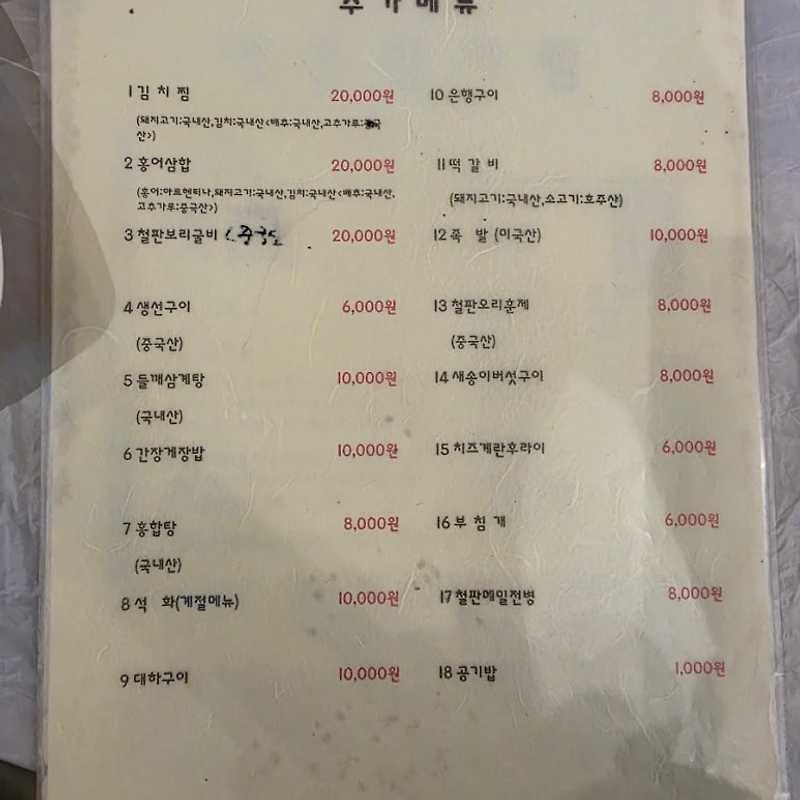 추가메뉴
1 김 치 찜 20,000원
(돼지고기:국내산,김치:국내산<배추:국내산,고추가루:중국
산>)
2 홍어삼합 20,000원
(홍어:아르헨티나,돼지고기:국내산,김치:국내산<배추:국내산,
고추가루:중국산>)
3 철판보리굴비 20,000원
4 생선구이 6,000원
(중국산)
5 들깨삼계탕 10,000원
(국내산)
6 간장게장밥 10,000원
7 홍합탕 8,000원
(국내산)
8 석 화(계절메뉴) 10,000원
9 대하구이 10,000원
10 은행구이 8,000원
11 떡 갈 비 8,000원
(돼지고기:국내산,소고기:호주산)
12 족 발 (미국산) 10,000원
13 철판오리훈제 8,000원
(중국산)
14 새송이버섯구이 8,000원
15 치즈계란후라이 6,000원
16 부 침 개 6,000원
17 철판메밀전병 8,000원
18 공기밥 1,000원